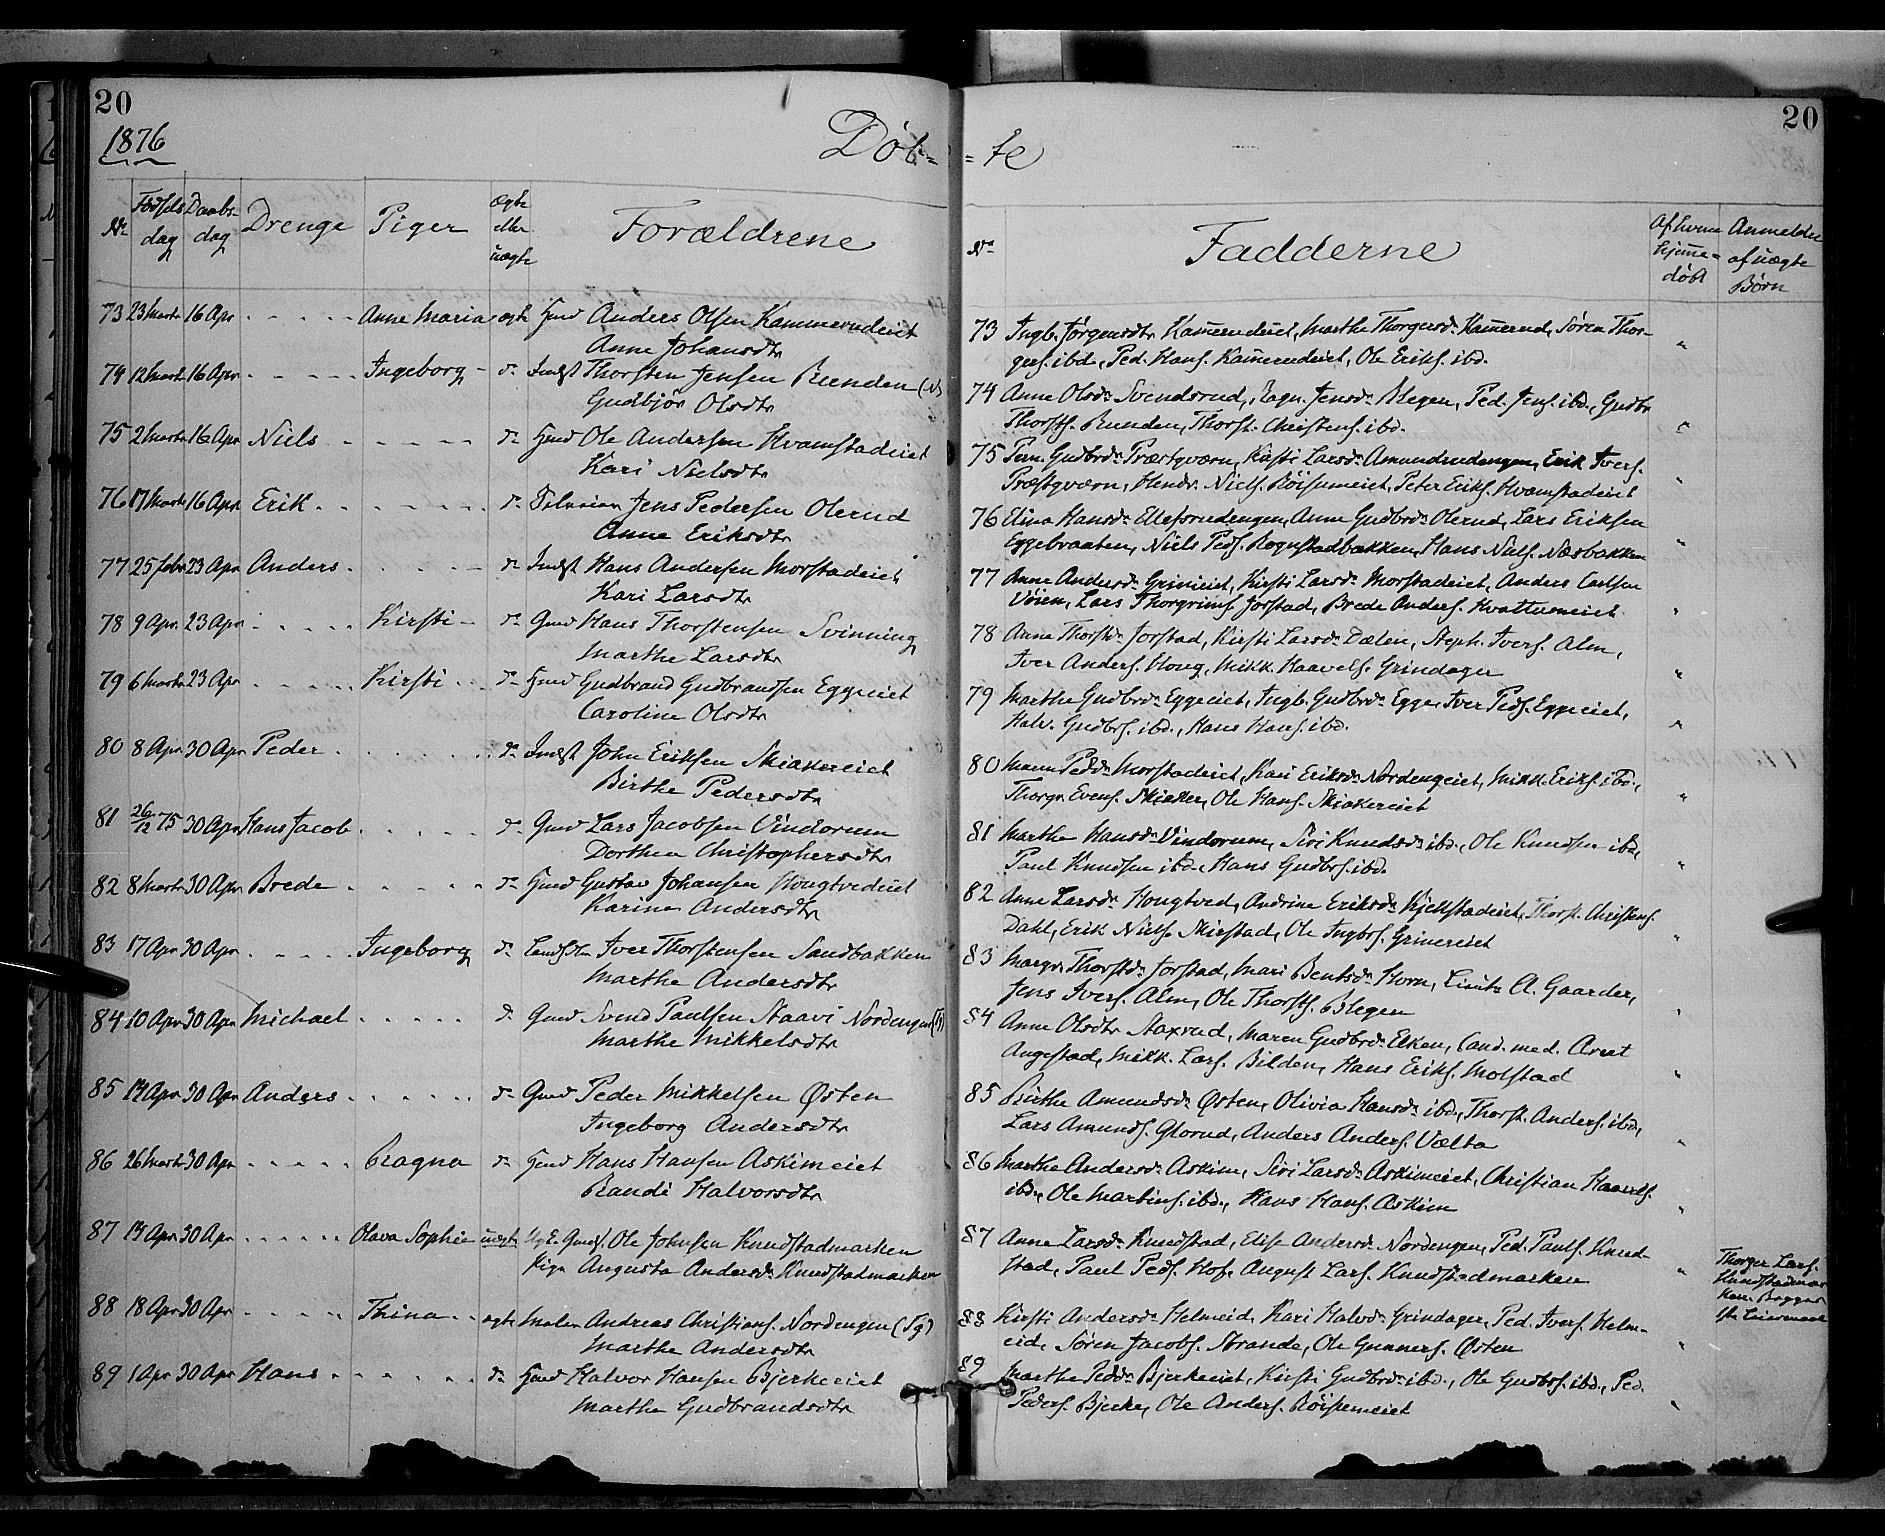 20
1876
Døb=
Nr Fødsels dag Daabs- dag Drenge Piger Ægte eller uægte Forældrene
73 23 Marts 16 Apr Anne Maria ægte Hmd Anders Olsen Kammerudeiet
Anne Johansdtr
74 12 Marts 16 Apr Ingeborg do Indst Thorsten Jensen Runden (N)
Gudbjør Olsdtr
75 2 Marts 16 Apr Niels do Hmd Ole Andersen Hvamstadeiet
Kari Nielsdtr
76 17 Marts 16 Apr Erik do Jens Pedersen Olerud
Anne Eriksdtr
77 25 Febr 23 Apr Anders do Indst Hans Andersen Morstadeiet
Kari Larsdtr
78 9 Apr 23 Apr Kirsti do Gmd Hans Thorstensen Svinning
Marthe Larsdtr
79 6 Marts 23 Apr Kirsti do Hmd Gudbrand Gudbrandsen Eggeeiet
Caroline Olsdtr
80 8 Apr 30 Apr Peder do Indst John Eriksen Skiakereiet
Birthe Pedersdtr
81 26/12 75 30 Apr Hans Jacob do Gmd Lars Jacobsen Vindorum
Dorthea Christophersdtr
82 8 Marts 30 Apr Brede do Hmd Gustav Johansen Hougtvedeiet
Karine Andersdtr
83 17 Apr 30 Apr Ingeborg do Landhdln Iver Thorstensen Sandbakken
Marthe Andersdtr
84 10 Apr 30 Apr Michael do Gmd Svend Paulsen Staavi Nordengen
Marthe Mikkelsdtr
85 14 Apr 30 Apr Anders do Gmd Peder Mikkelsen Østen
Ingeborg Andersdtr
86 26 Marts 30 Apr Ragna do Hmd Hans Hansen Askimeiet
Randi Halvorsdtr
87 14 Apr 30 Apr Olava Sophie uægte Ug E. Gmds. Ole Johnsen Knudstadmarken
Pige Augusta Andersdr Knudstadmarken
88 18 Apr 30 Apr Thina ægte Maler Andreas Christians. Nordengen
Marthe Andersdtr
89 1 Apr 30 Apr Hans do Hmd Halvor Hansen Bjerkeeiet
Marthe Gudbrandsdtr
20
=te
No Fadderne Af hvem hjemme= døbt Anmelder af uægte Børn
73 Ingb. Jørgensdtr Kammerudeiet, Marthe Thorgersdr Kammerud, Søren Thor-
gers. ibd., Ped. Hans. Kammerudeiet, Ole Eriks. ibd.
74 Anne Olsdr Svendsrud, Ragn. Jensdr Blegen, Ped. Jens. ibd., Gudbr.
Thorsts. Runden, Thorst. Christens. ibd.
75 Pern. Gudbrdr Præstqværn, Kirsti Larsdr Amundrudengen, Erik Ivers.
Præstqværn, Hendr. Niels. Røisumeiet, Peter Eriks. Hvamstadeiet
76 Elina Hansdr Ellefsrudengen, Anne Gudbrdr Olerud, Lars Eriksen
Eggebraaten, Niels Peds. Rognstadbakken, Hans Niels. Næsbakken
77 Anne Andersdr Grineiet, Kirsti Larsdr Morstadeiet, Anders Carlsen
Vøien, Lars Thorgrims. Jorstad, Brede Anders. Hvattumeiet
78 Anne Thorstdr Jorstad, Kirsti Larsdr Dælen, Steph. Ivers. Alm,
Iver Anders. Houg, Mikk. Haavels. Grindager
79 Marthe Gudbrdr Eggeeiet, Ingb. Gudbrdr Egge, Iver Peds. Eggeeiet,
Halv. Gudbrs. ibd., Hans Hans. ibd.
80 Maren Peddr Morstadeiet, Kari Eriksdr Nordengeiet, Mikk. Eriks. ibd.,
Thorgr. Evens. Skiaker, Ole Hans. Skiakereiet
81 Marthe Hansdr Vindorum, Siri Knudsdr ibd., Ole Knudsen ibd.,
Paul Knudsen ibd., Hans Gudbrs. ibd.
82 Anne Larsdr Hougtved, Andrine Eriksdr Kjekstadeiet, Thorst. Christens.
Dahl, Erik Niels. Skiestad, Ole Ingbrs. Grinereiet
83 Margr. Thorstdr Jorstad, Mari Bentsdr Horn, Lieutn. A. Gaarder,
Jens Ivers. Alm, Ole Thorsts. Blegen
84 Anne Olsdtr Staxrud, Maren Gudbrdr Elken, Cand. med. Arnt
Augestad, Mikk. Lars. Bilden, Hans Eriks. Molstad
85 Birthe Amundsdr Østen, Olivia Hansdr ibd., Thorst. Anders. ibd.,
Lars Amunds. Glorud, Anders Anders. Vælta
86 Marthe Andersdr Askim, Siri Larsdr Askimeiet, Christian Haavels.
ibd., Ole Martins. ibd., Hans Hans. Askim
87 Anne Larsdr Knudstad, Elise Andersdr Nordengen, Ped. Pauls. Knud-
stad, Paul Peds. Hof, August Lars. Knudstadmarken
Thorger Lars.
Knudstadmar
ken. Begges
1ste Leiermaal
88 Kirsti Andersdr Helmeid, Kari Halvdr Grindager, Ped. Ivers. Helm-
eid, Søren Jacobs. Strande, Ole Gunners. Østen
89 Marthe Peddr Bjerkeeiet, Kirsti Gudbrdr ibd., Ole Gudbrs. ibd., Ped.
Peders. Bjerke, Ole Anders. Røisumeiet